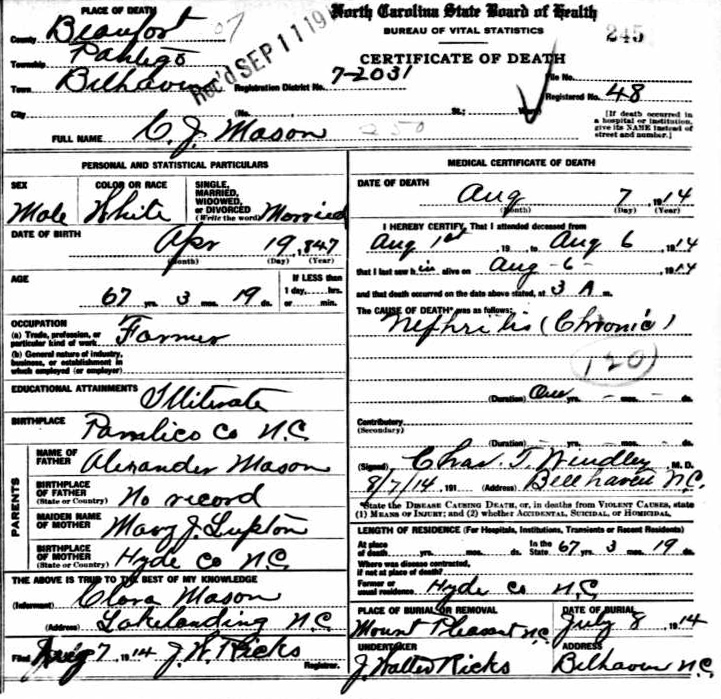 PLACE OF DEATH
North Carolina State Board of Health
BUREAU OF VITAL STATISTICS
County Beaufort
Rec'd SEP 11 19
245
Township Pantego
CERTIFICATE OF DEATH
Town Belhaven
Registration District No. 7-2031
File No.
Registered No. 48
City
(No. St.; Ward)
[If death occurred in a hospital or institution, give its NAME instead of street and number.]
FULL NAME C. J. Mason
250
PERSONAL AND STATISTICAL PARTICULARS
SEX
Male
COLOR OR RACE
White
SINGLE, MARRIED, WIDOWED, or DIVORCED (Write the word)
Married
DATE OF BIRTH
Apr 19, 1847
(Month) (Day) (Year)
AGE
67 yrs. 3 mos. 19 ds.
If LESS than 1 day,....hrs. or....min.
OCCUPATION
(a) Trade, profession, or particular kind of work Farmer
(b) General nature of industry, business, or establishment in which employed (or employer)
EDUCATIONAL ATTAINMENTS
Illiterate
BIRTHPLACE
Pamlico Co N.C.
PARENTS
NAME OF FATHER
Alexander Mason
BIRTHPLACE OF FATHER (State or Country)
No record
MAIDEN NAME OF MOTHER
Mary J. Lupton
BIRTHPLACE OF MOTHER (State or Country)
Hyde Co N.C.
THE ABOVE IS TRUE TO THE BEST OF MY KNOWLEDGE
(Informant) Clara Mason
(Address) Lakelanding N.C.
Filed Aug 7, 1914 J. W. Ricks
Registrar.
MEDICAL CERTIFICATE OF DEATH
DATE OF DEATH
Aug 7 1914
(Month) (Day) (Year)
I HEREBY CERTIFY, That I attended deceased from
Aug 1st, 19 to Aug 6, 1914
that I last saw him alive on Aug -6-, 1914
and that death occurred on the date above stated, at 3 A m.
The CAUSE OF DEATH* was as follows:
Nephritis (Chronic)
120
(Duration) One yrs. mos. ds.
Contributory
(Secondary)
(Duration) yrs. mos. ds.
(Signed) Chas. T. Windley M. D.
8/7/14, 191 (Address) Bellhaven N.C.
*State the DISEASE CAUSING DEATH, or, in deaths from VIOLENT CAUSES, state (1) MEANS OF INJURY; and (2) whether ACCIDENTAL, SUICIDAL, or HOMICIDAL.
LENGTH OF RESIDENCE (For Hospitals, Institutions, Transients or Recent Residents)
At place of death....yrs. mos. ds. In the State 67 3 19 ds.
Where was disease contracted, if not at place of death?
Former or usual residence Hyde Co N.C
PLACE OF BURIAL OR REMOVAL
Mount Pleasant N.C.
DATE OF BURIAL
July 8 1914
UNDERTAKER
J. Walter Ricks
ADDRESS
Belhaven N.C.